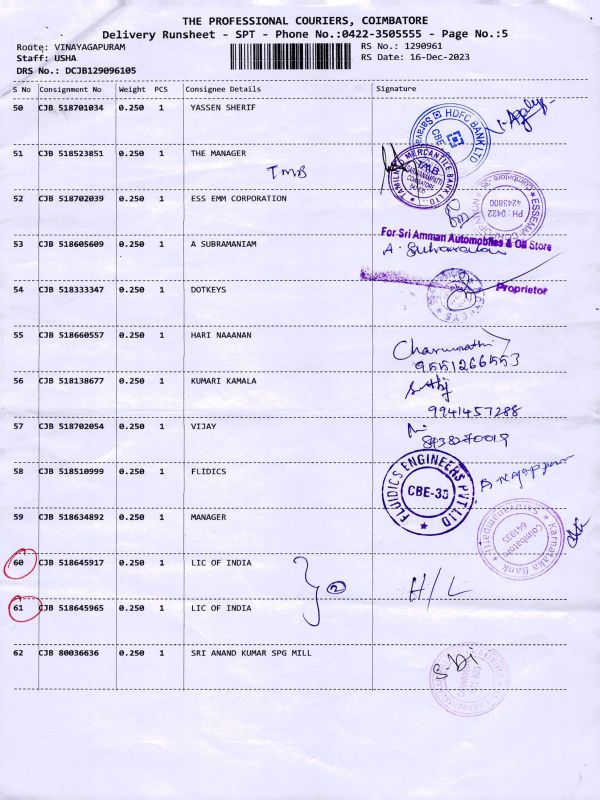 THE PROFESSIONAL COURIERS, COIMBATORE
Delivery Runsheet - SPT - Phone No.:0422-3505555 - Page No.:5
Route: VINAYAGAPURAM
RS No.: 1290961
Staff: USHA
RS Date: 16-Dec-2023
DRS No.: DCJB129096105
S No Consignment No Weight PCS Consignee Details Signature
50 CJB 518701034 0.250 1 YASSEN SHERIF
HDFC BANK LTD
51 CJB 518523851 0.250 1 THE MANAGER
TMB
TAMILNAD MERCANTILE BANK LTD.
TMB
52 CJB 518702039 0.250 1 ESS EMM CORPORATION
PH : 0422
4243800
53 CJB 518605609 0.250 1 A SUBRAMANIAM
For Sri Amman Automobiles & Oil Store
Proprietor
54 CJB 518333347 0.250 1 DOTKEYS
55 CJB 518660557 0.250 1 HARI NAAANAN
9551266553
56 CJB 518138677 0.250 1 KUMARI KAMALA
9941457288
57 CJB 518702054 0.250 1 VIJAY
8438270019
58 CJB 518510999 0.250 1 FLIDICS
FLUIDICS ENGINEERS PVT LTD
CBE-35
59 CJB 518634892 0.250 1 MANAGER
Karnataka Bank
Saravanampatti
Coimbatore
641035
60 CJB 518645917 0.250 1 LIC OF INDIA
2
H/L
61 CJB 518645965 0.250 1 LIC OF INDIA
62 CJB 80036636 0.250 1 SRI ANAND KUMAR SPG MILL